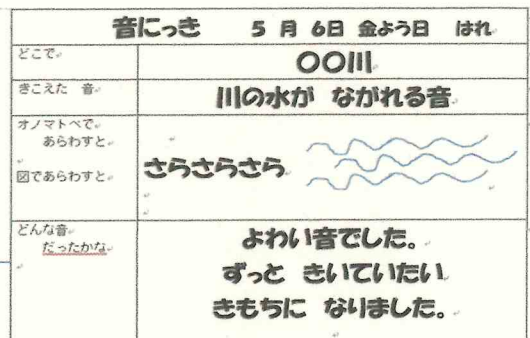 音にっき 5月 6日 金よう日 はれ
どこで
〇〇川
きこえた 音
川の水が ながれる音
オノマトペで
あらわすと
図であらわすと
さらさらさら
どんな音
だったかな
よわい音でした。
ずっと きいていたい
きもちに なりました。